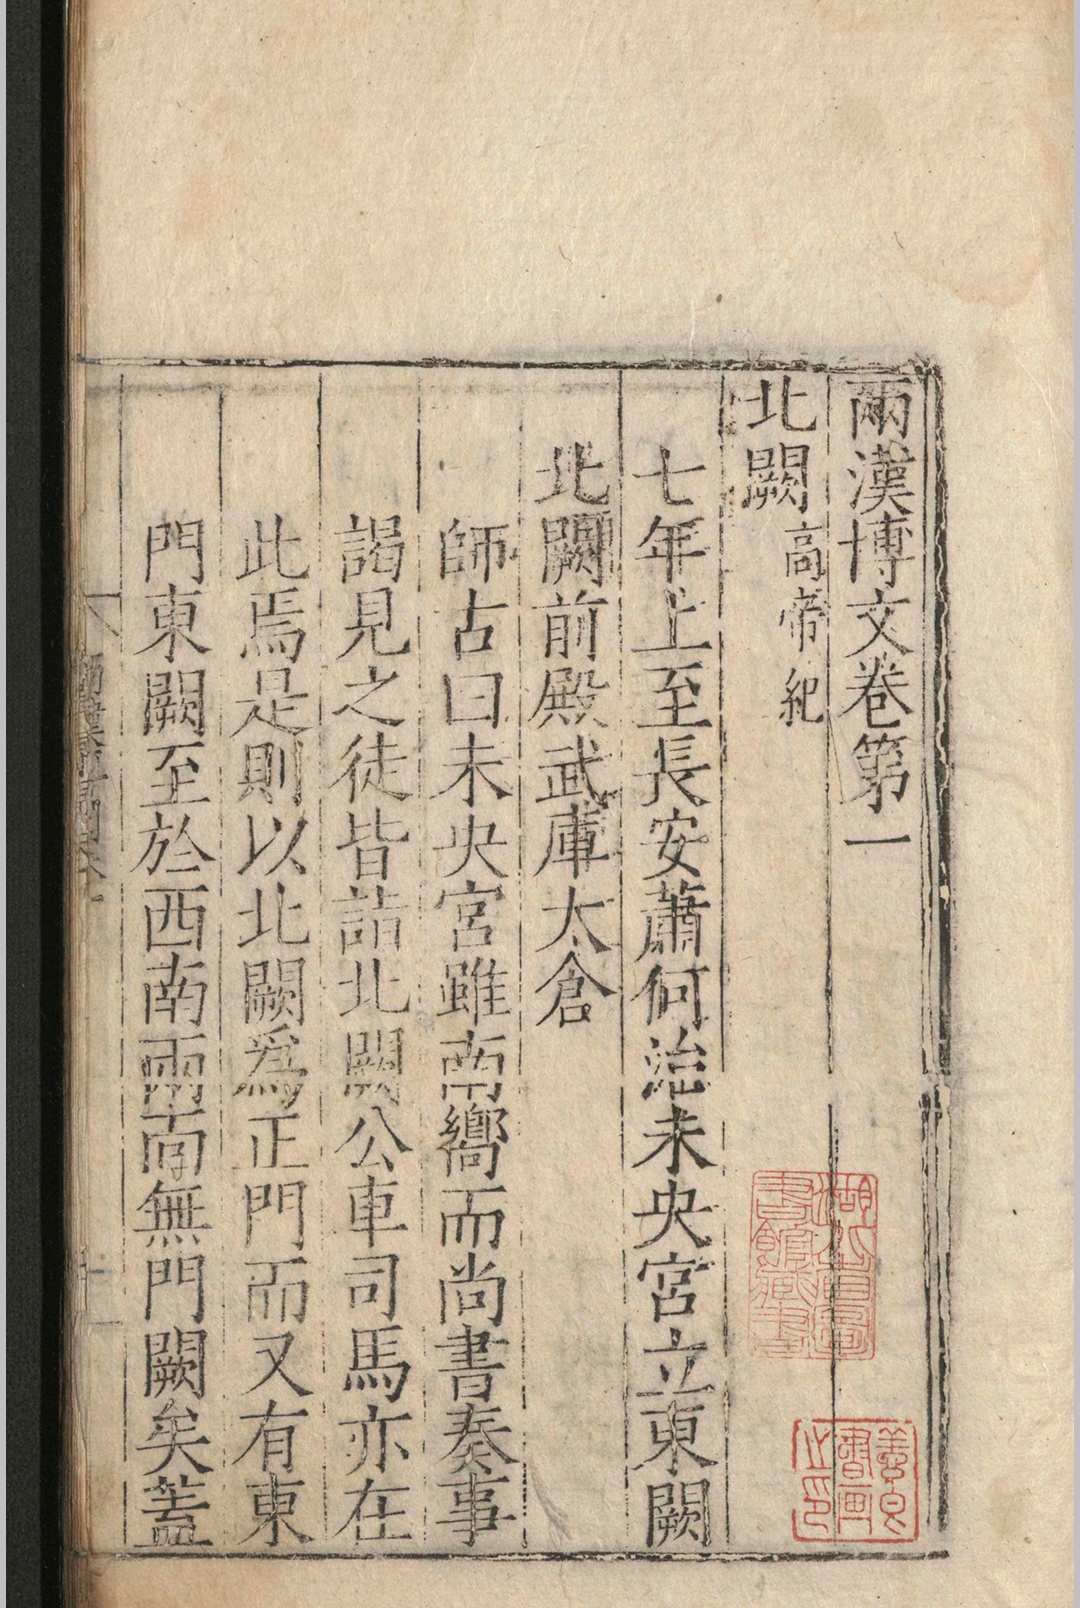 兩漢博文卷第一
北闕高帝紀
七年上至長安蕭何治未央宮立東闕
北闕前殿武庫太倉
師古曰未央宮雖南嚮而尚書奏事
謁見之徒皆詣北闕公車司馬亦在
此焉是則以北闕爲正門而又有東
門東闕至於西南兩面無門闕矣蓋